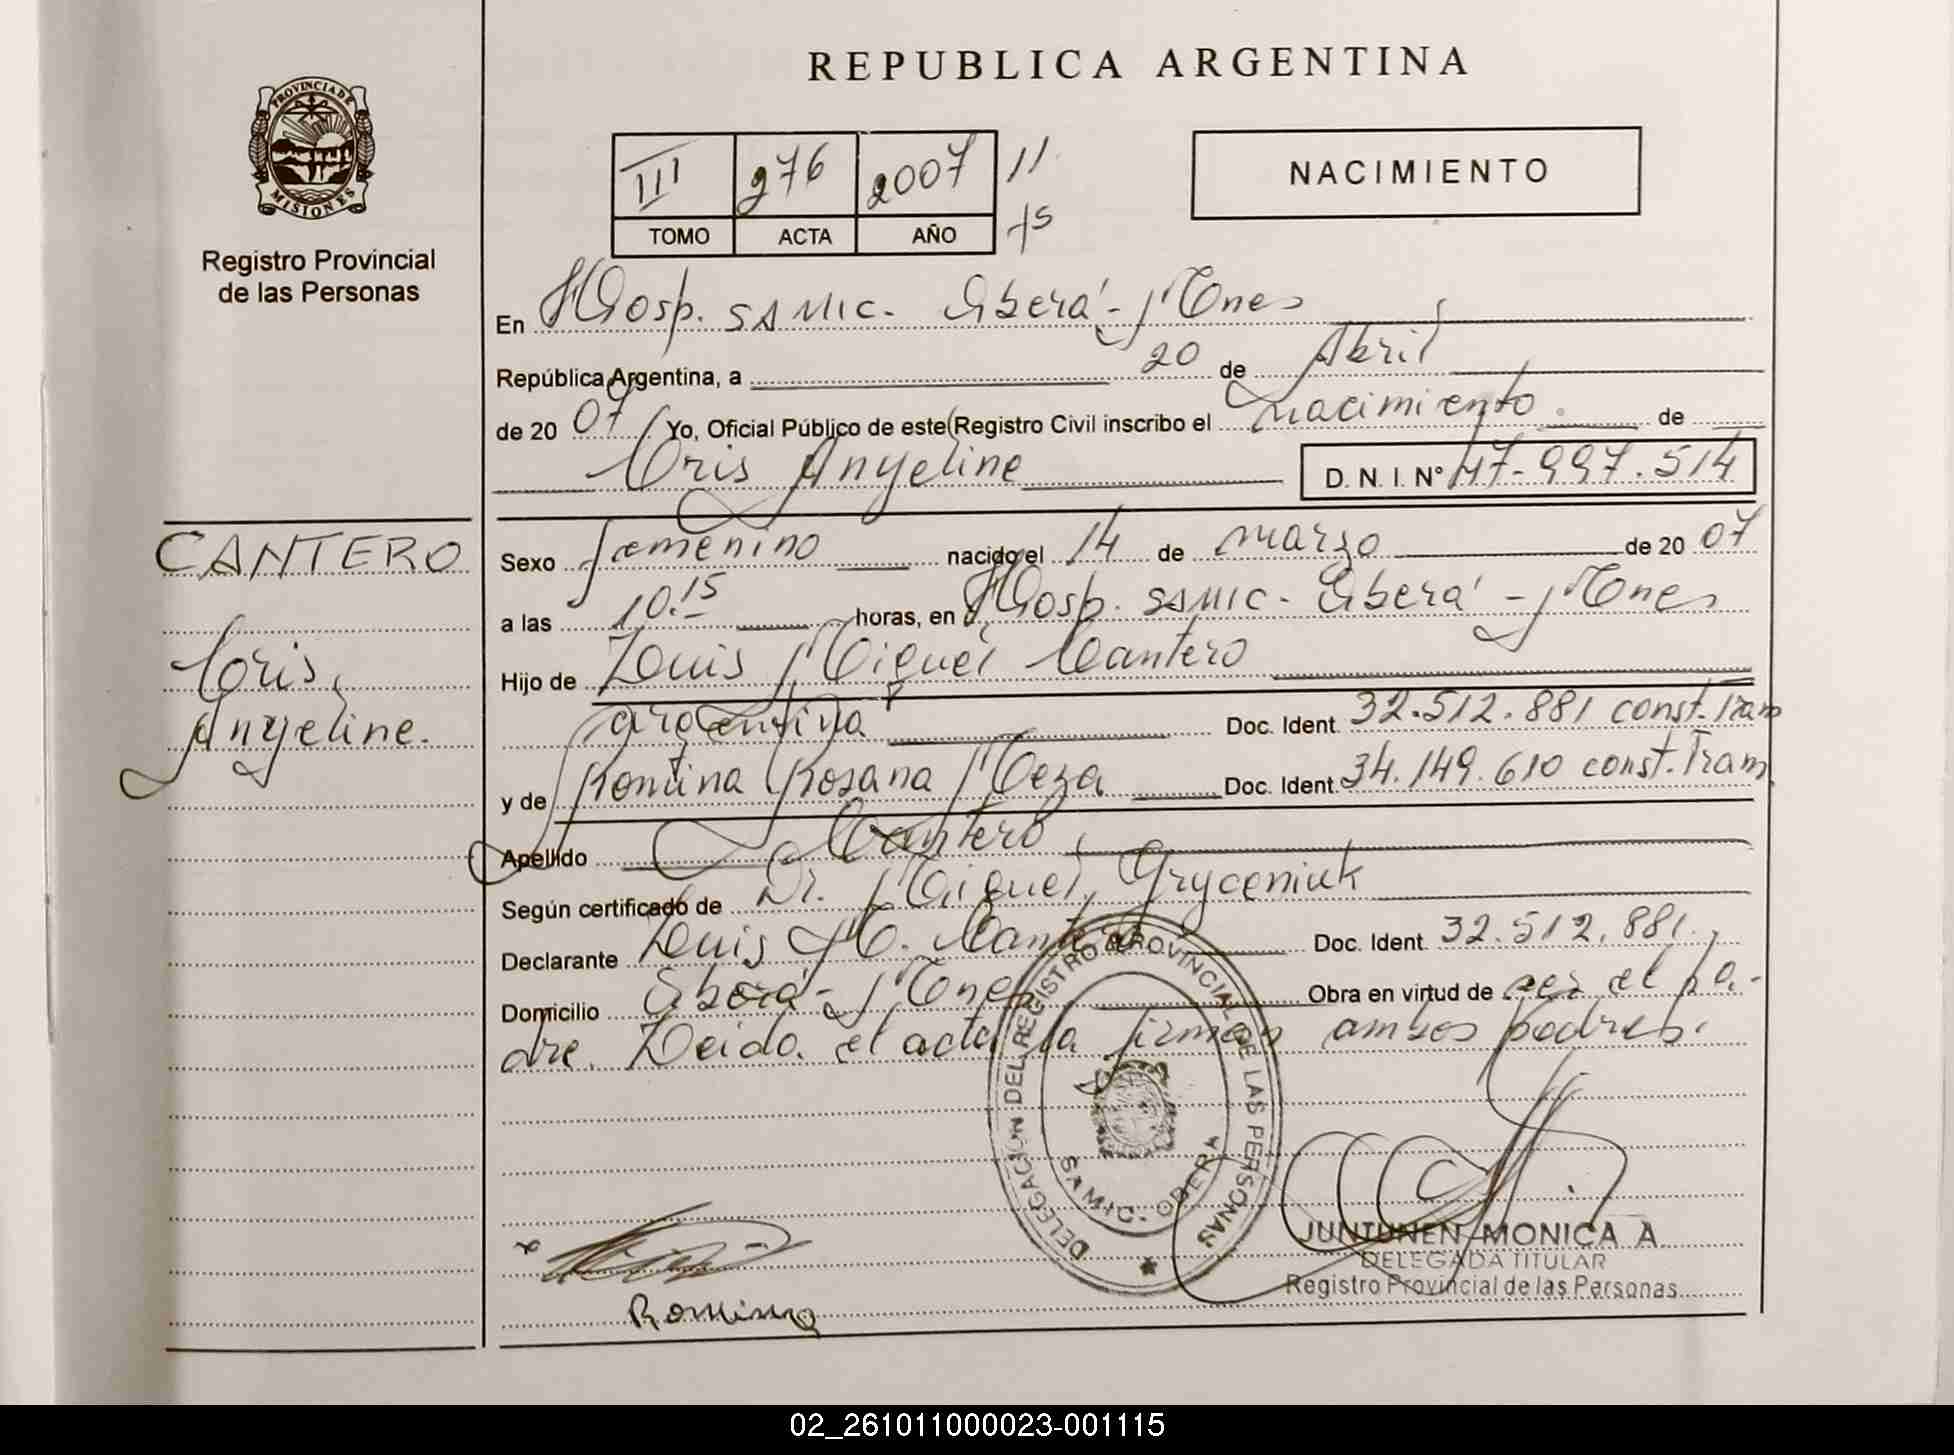 REPUBLICA ARGENTINA
PROVINCIA DE
MISIONES
Registro Provincial
de las Personas
III 276 2007 11
TOMO ACTA AÑO
NACIMIENTO
En Hosp. SAMIC. Oberá - Mones
República Argentina, a 20 de Abril
de 20 07 Yo, Oficial Público de este Registro Civil inscribo el nacimiento de
Cris Anyeline D. N. I. Nº 47-997.514
CANTERO
Cris,
Anyeline.
Sexo femenino nacido el 14 de marzo de 20 07
a las 10.15 horas, en Hosp. SAMIC - Oberá - Mones
Hijo de Luis Miguel Cantero
argentina Doc. Ident. 32.512.881 const. Tram
y de Romina Rosana Meza Doc. Ident. 34.149.610 const. Tram.
Apellido Cantero
Según certificado de Dr. Miguel Gryceniuk
Declarante Luis M. Cantero Doc. Ident. 32.512.881.
Domicilio Oberá - Mones Obra en virtud de ser el pa-
dre. Leida el acta la firman ambos padres.
DELEGACION DEL REGISTRO PROVINCIAL DE LAS PERSONAS
SAMIC - OBERA
JUNTUNEN MONICA A
DELEGADA TITULAR
Registro Provincial de las Personas
Romina
02_261011000023-001115